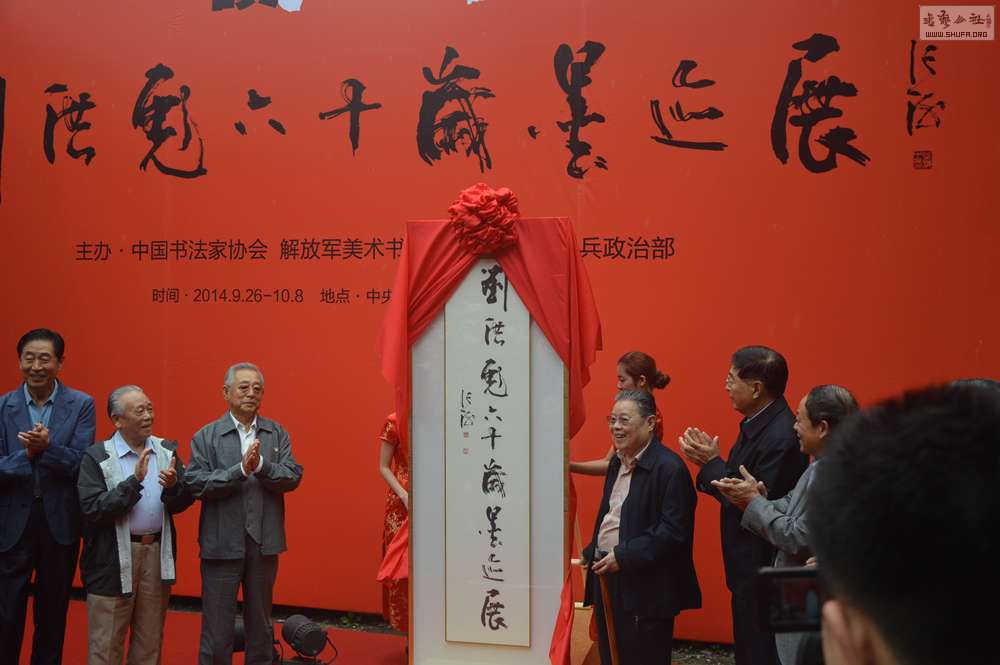 書藝公社
WWW.SHUFA.ORG
洪彪六十歲墨迹展
主办·中国书法家协会 解放军美术书
兵政治部
时间·2014.9.26-10.8 地点·中央
劉洪彪六十歲墨迹展